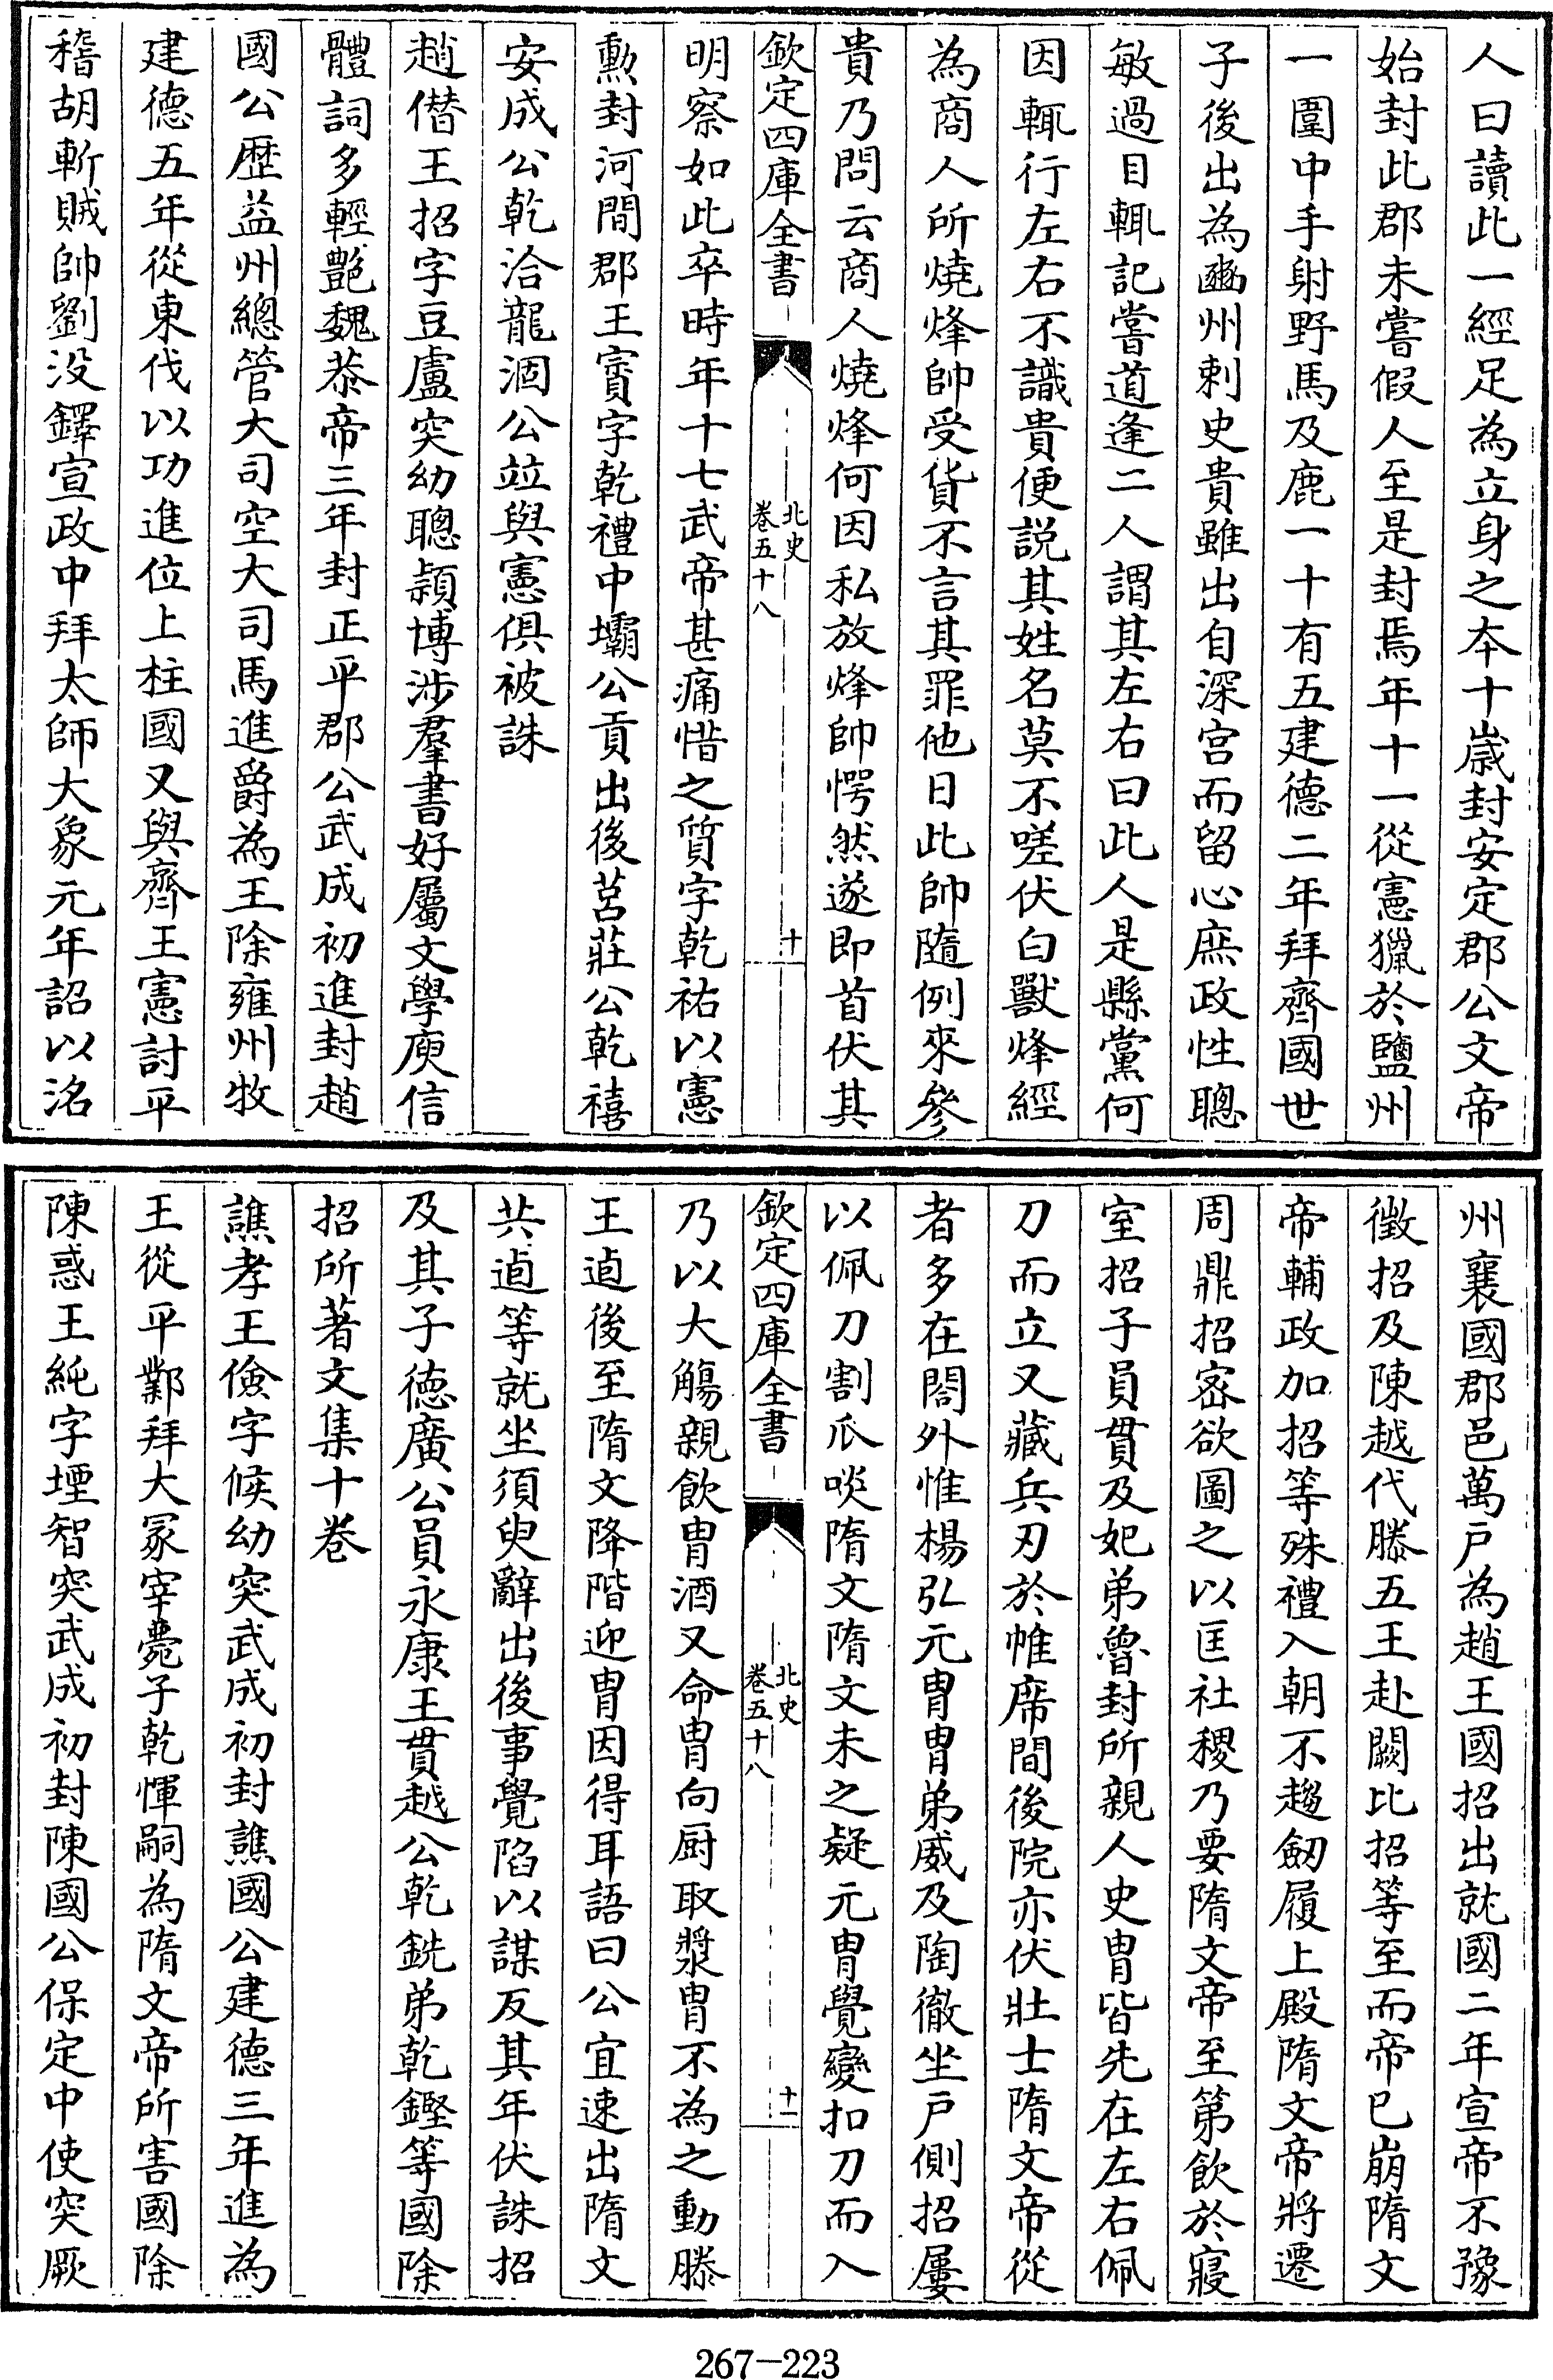 人曰讀此一經足為立身之本十歲封安定郡公文帝
始封此郡未嘗假人至是封焉年十一從憲獵於鹽州
一圍中手射野馬及鹿一十有五建德二年拜齊國世
子後出為豳州刺史貴雖出自深宫而留心庶政性聰
敏過目輒記嘗道逢二人謂其左右曰此人是縣黨何
因輒行左右不識貴便説其姓名莫不嗟伏白獸烽經
為商人所燒烽帥受貨不言其罪他日此帥隨例來參
貴乃問云商人燒烽何因私放烽帥愕然遂即首伏其
欽定四庫全書
北史
卷五十八
十
明察如此卒時年十七武帝甚痛惜之質字乾祐以憲
勲封河間郡王賓字乾禮中壩公貢出後莒莊公乾禧
安成公乾洽龍涸公竝與憲俱被誅
趙僭王招字豆盧突幼聰頴博涉羣書好屬文學庾信
體詞多輕艶魏恭帝三年封正平郡公武成初進封趙
國公歴益州總管大司空大司馬進爵為王除雍州牧
建德五年從東伐以功進位上柱國又與齊王憲討平
稽胡斬賊帥劉没鐸宣政中拜太師大象元年詔以洺
州襄國郡邑萬戸為趙王國招出就國二年宣帝不豫
徵招及陳越代滕五王赴闕比招等至而帝已崩隋文
帝輔政加招等殊禮入朝不趨劒履上殿隋文帝將遷
周鼎招宻欲圖之以匡社稷乃要隋文帝至第飲於寢
室招子員貫及妃弟魯封所親人史胄皆先在左右佩
刀而立又藏兵刃於帷席間後院亦伏壯士隋文帝從
者多在閤外惟楊弘元胄胄弟威及陶徹坐戸側招屢
以佩刀割瓜啖隋文隋文未之疑元胄覺變扣刀而入
欽定四庫全書
北史
卷五十八
十一
乃以大觴親飲胄酒又命胄向厨取漿胄不為之動滕
王逌後至隋文降階迎胄因得耳語曰公宜速出隋文
共逌等就坐須臾辭出後事覺陷以謀反其年伏誅招
及其子德廣公員永康王貫越公乾銑弟乾鏗等國除
招所著文集十卷
譙孝王儉字候幼突武成初封譙國公建德三年進為
王從平鄴拜大冢宰薨子乾惲嗣為隋文帝所害國除
陳惑王純字堙智突武成初封陳國公保定中使突厥
267-223